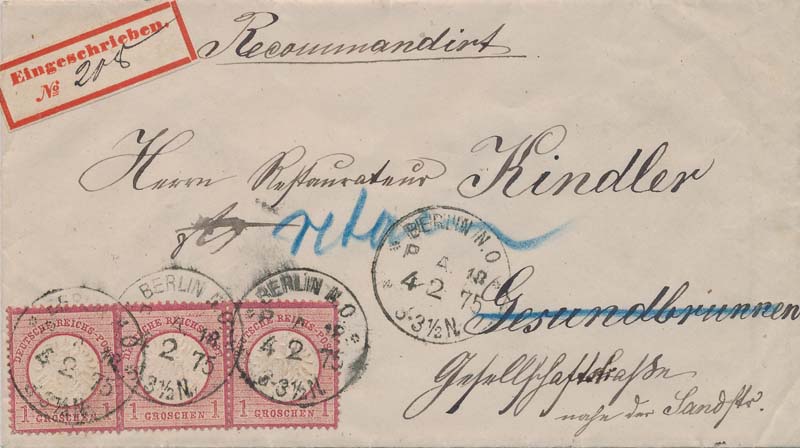 Eingeschrieben.
№ 208
Recommandirt
Herrn Restaurateur Kindler
retour
BERLIN N.O
P. A. 18
4 2 75
3-3½N.
Gesundbrunnen
Gesellschaftstraße
nahe der Sandstr.
BERLIN N.O
4 2 75
3-3½N.
BERLIN N.O
2 75
3-3½N.
BERLIN N.O
4 2 75
3-3½N.
DEUTSCHE REICHS-POST
1 GROSCHEN 1
DEUTSCHE REICHS-POST
1 GROSCHEN 1
DEUTSCHE REICHS-POST
1 GROSCHEN 1